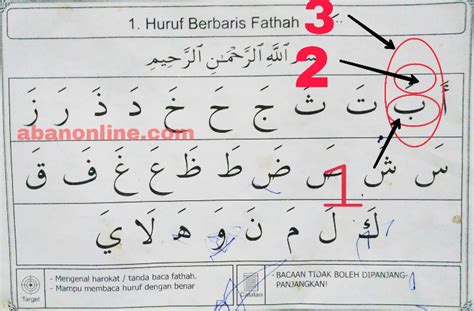 1. Huruf Berbaris Fathah
3
بِسْمِ اللَّهِ الرَّحْمَٰنِ الرَّحِيمِ
2
أَ بَ تَ ثَ جَ حَ خَ دَ ذَ رَ زَ
abanonline.com
سَ شَ صَ ضَ طَ ظَ عَ غَ فَ قَ
1
كَ لَ مَ نَ وَ هَ لَا يَ
Target
- Mengenal harokat / tanda baca fathah.
- Mampu membaca huruf dengan benar
Catatan
- BACAAN TIDAK BOLEH DIPANJANG-
PANJANGKAN!